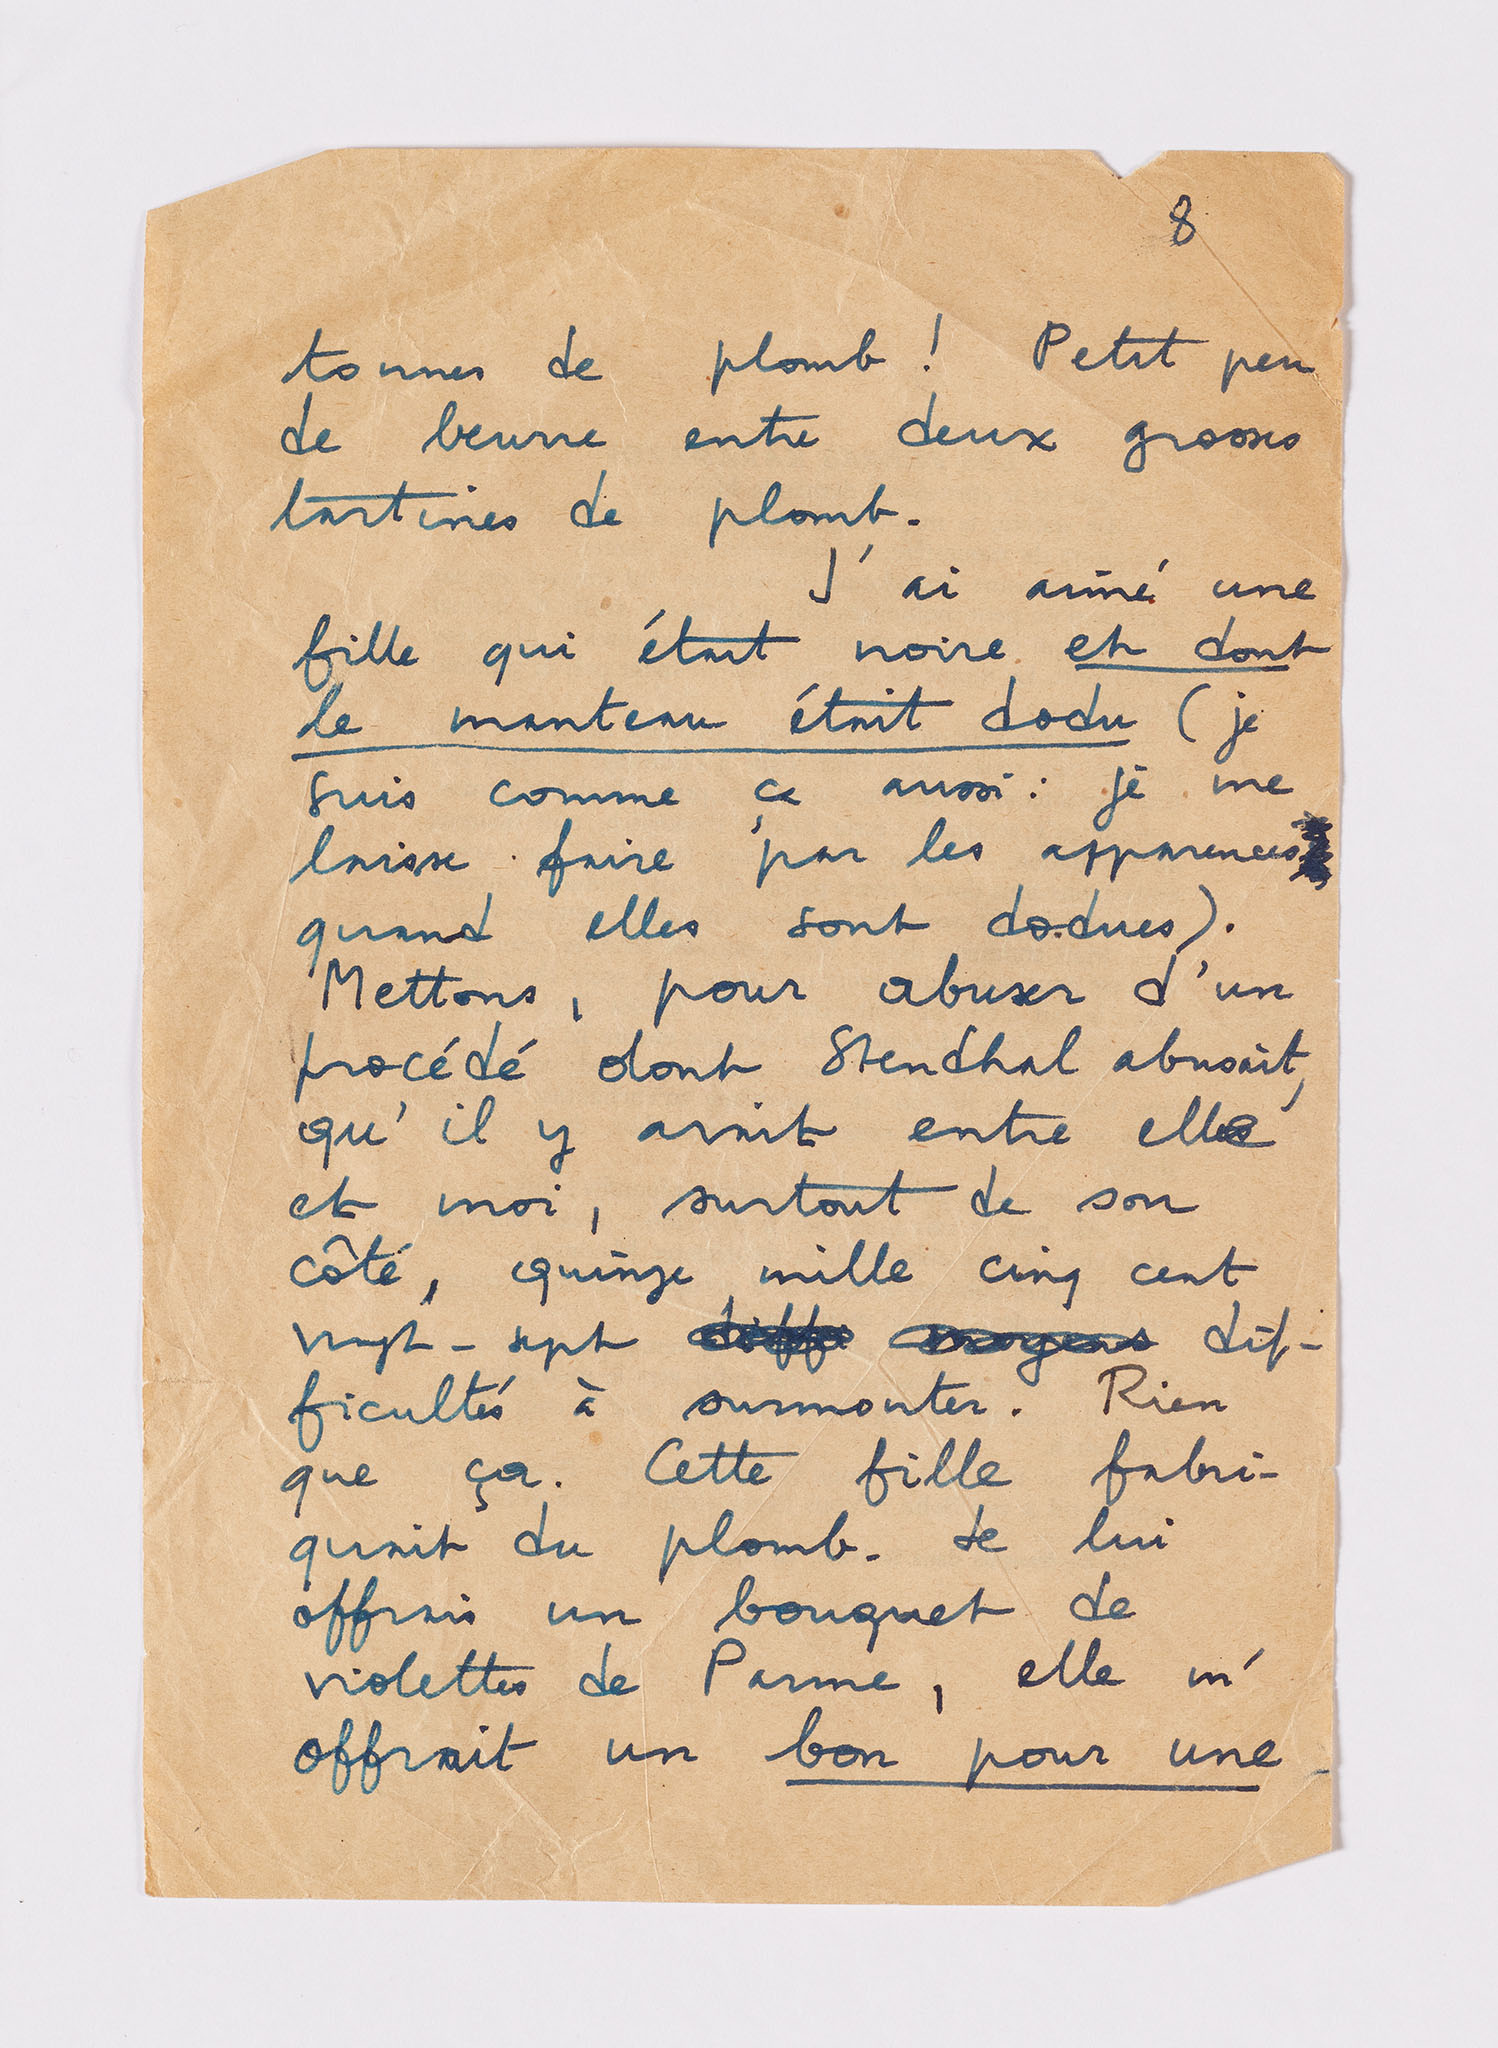 8
tonnes de plomb ! Petit peu
de beurre entre deux grosses
tartines de plomb.
J'ai aimé une
fille qui était noire et dont
le manteau était dodu (je
suis comme ça aussi : je me
laisse faire par les apparences
quand elles sont dodues).
Mettons, pour abuser d'un
procédé dont Stendhal abusait,
qu'il y avait entre elle
et moi, surtout de son
côté, quinze mille cinq cent
vingt-sept diffi moyens dif-
ficultés à surmonter. Rien
que ça. Cette fille fabri-
quait du plomb. Je lui
offrais un bouquet de
violettes de Parme, elle m'
offrait un bon pour une